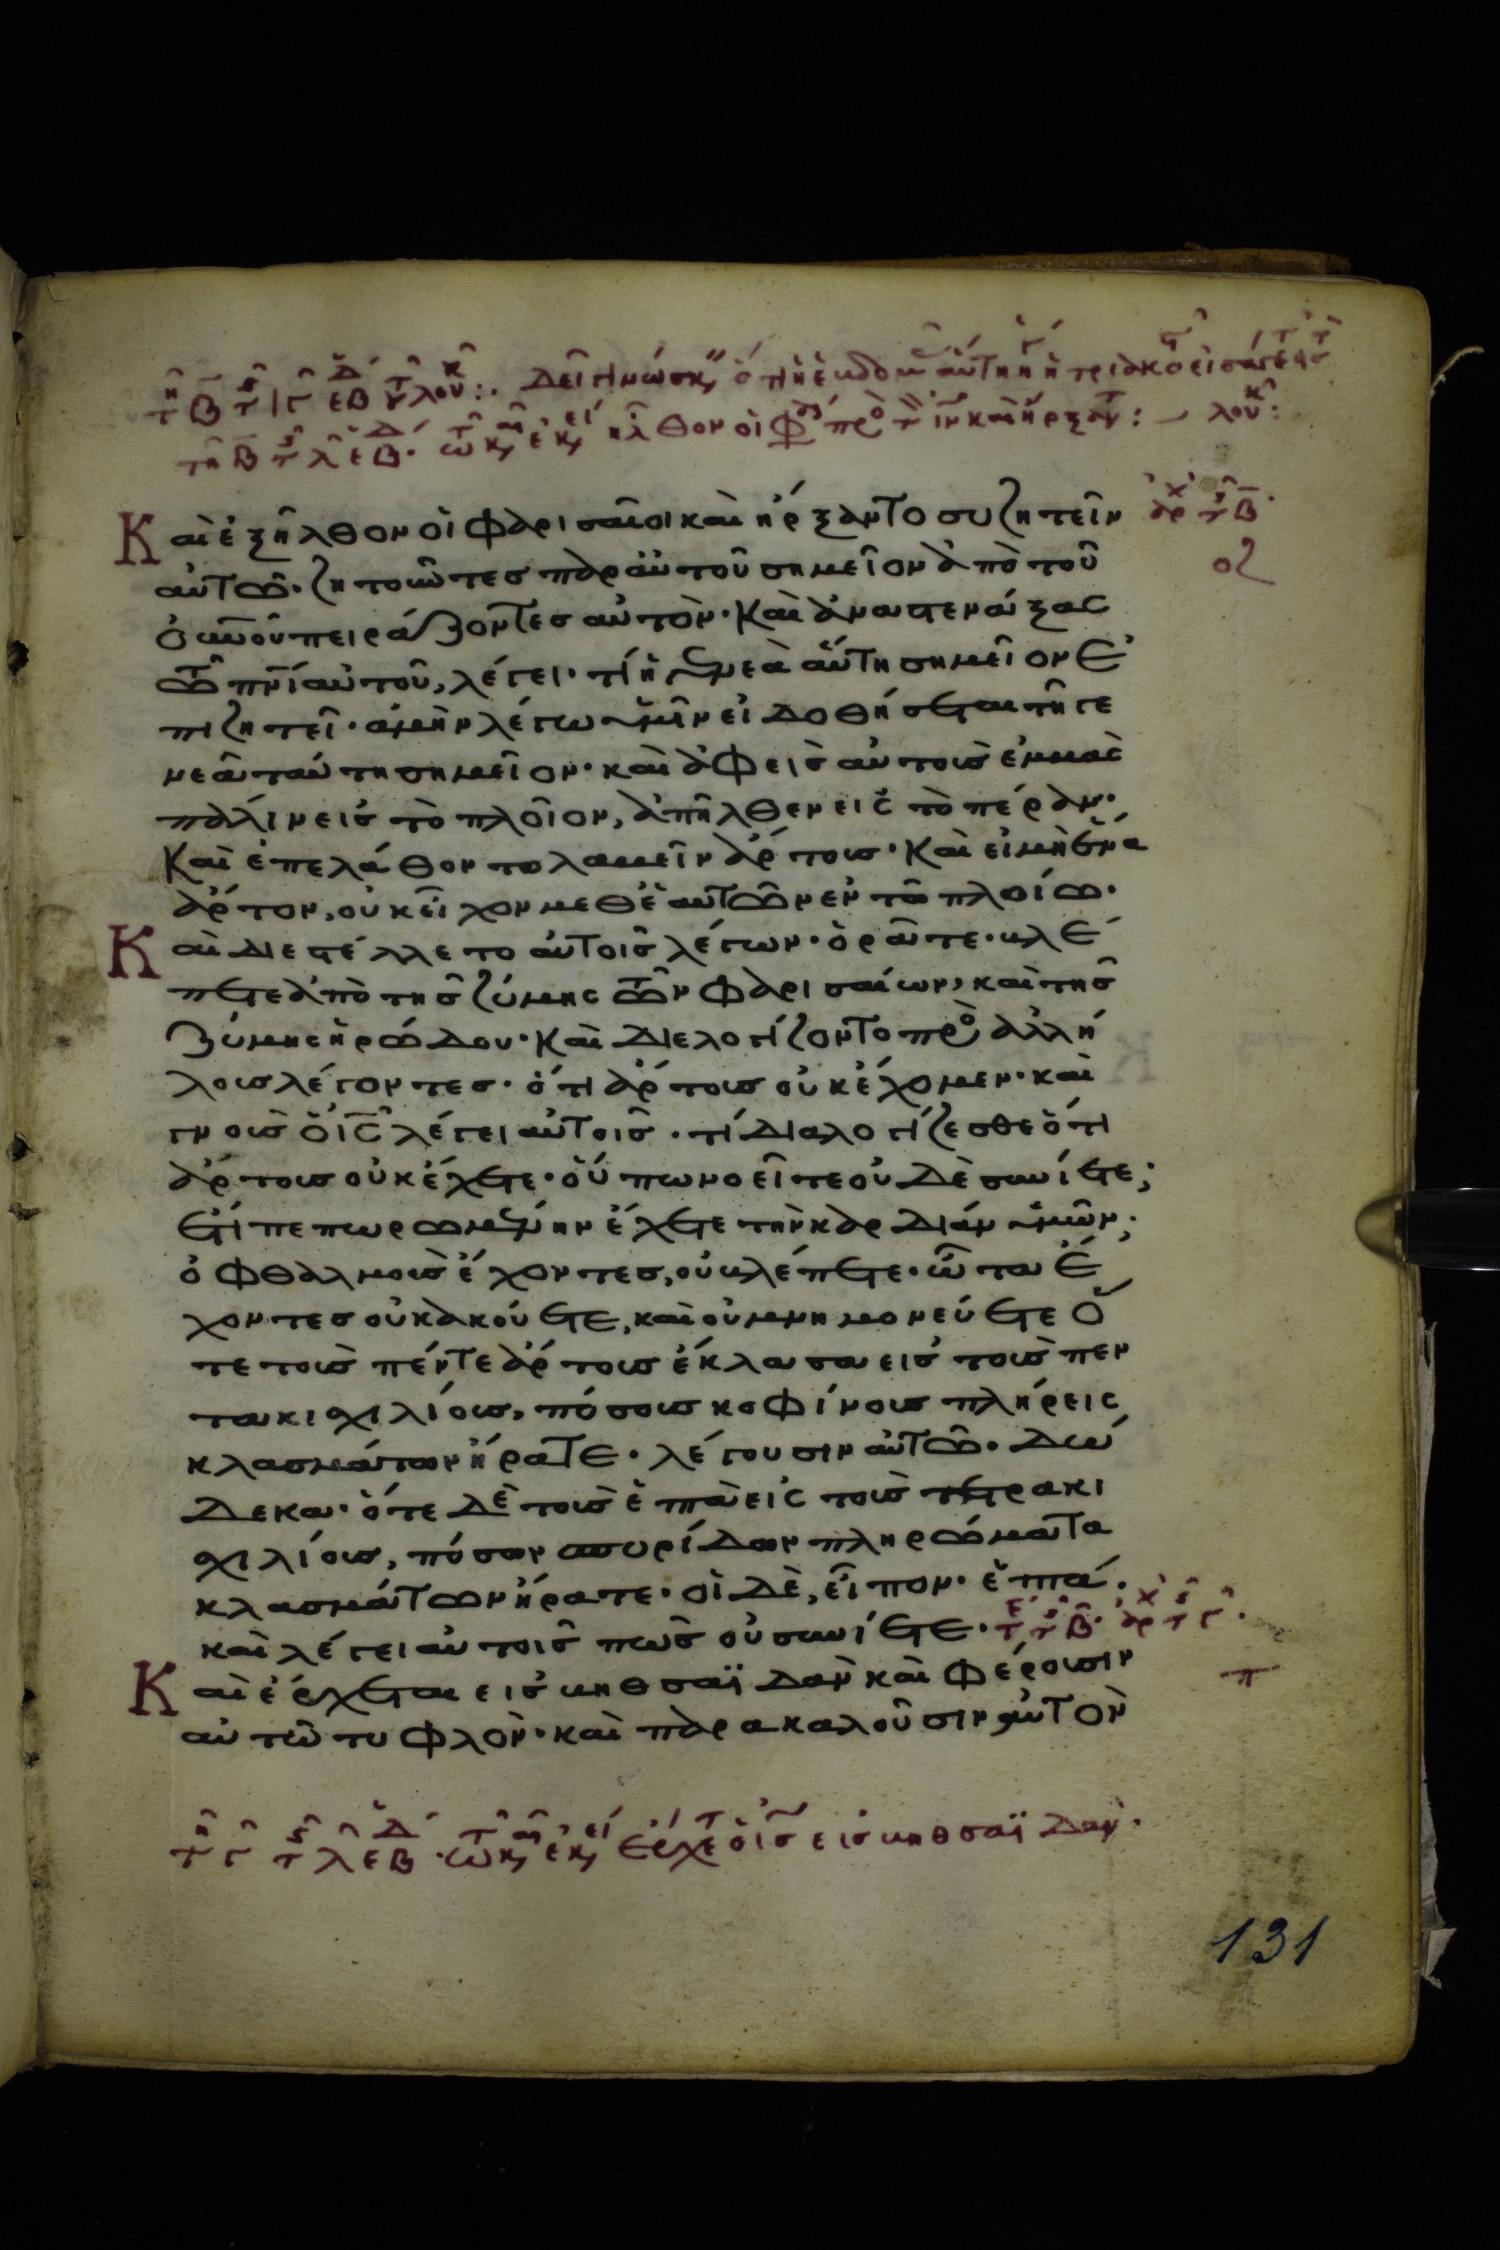 τῇ Β τ ς Ιγ ἑβδ τ λουκ :. Δεῖ γινώσκ ὅτι ἡ ἑβδομ αὕτη
τῇ Β τ ς λγ ἑβδ. τῶ κ, ἐκ, ἦλθον οἱ Φ πρὸ τ ιν καὶ ἤρξαν : λουκ :
Καὶ ἐξῆλθον οἱ φαρισαῖοι καὶ ἤρξαντο συζητεῖν ἀρχ τ ς Β
αὐτῶ· ζητοῦντες παρ αὐτοῦ σημεῖον ἀπὸ τοῦ οζ
οὐνοῦ πειράζοντες αὐτὸν· Καὶ ἀναστενάξας
τῶ πνι αὐτοῦ, λέγει· τί ἡ γενεὰ αὕτη σημεῖον ἐ
πιζητεῖ· ἀμὴν λέγω ὑμῖν εἰ δοθήσεται τῆ γε
νεᾶ ταύτη σημεῖον· καὶ ἀφεὶς αὐτοὺς ἐμβὰς
πάλιν εἰς τὸ πλοῖον, ἀπῆλθεν εἰς τὸ πέραν·
Καὶ ἐπελάθοντο λαβεῖν ἄρτους· Καὶ εἰ μὴ ἕνα
ἄρτον, οὐκ εἶχον μεθ ἑαυτῶν ἐν τῶ πλοίω·
Καὶ διεστέλλετο αὐτοῖς λέγων· ὁρᾶτε· βλέ
πετε ἀπὸ τῆς ζύμης τῶν φαρισαίων, καὶ τῆς
ζύμης ἡρώδου· Καὶ διελογίζοντο πρὸ ἀλλή
λους λέγοντες· ὅτι ἄρτους οὐκ ἔχομεν· καὶ
γνοὺς ὁ ις λέγει αὐτοῖς· τί διαλογίζεσθε ὅτι
ἄρτους οὐκ ἔχετε· οὔπω νοεῖτε οὐδὲ συνίετε;
ἔτι πεπωρωμένην ἔχετε τὴν καρδίαν ὑμῶν;
ὀφθαλμοὺς ἔχοντες, οὐ βλέπετε· ὦτα ἔ
χοντες οὐκ ἀκούετε, καὶ οὐ μνημονεύετε ὅ
τε τοὺς πέντε ἄρτους ἔκλασα εἰς τοὺς πεν
τακιχιλίους, πόσους κοφίνους πλήρεις
κλασμάτων ἤρατε· λέγουσιν αὐτῶ· δώ
δεκα· ὅτε δὲ τοὺς ἑπτὰ εἰς τοὺς τετρακι
χιλίους, πόσων σπυρίδων πληρώματα
κλασμάτων ἤρατε· οἱ δὲ, εἶπον· ἑπτά·
καὶ λέγει αὐτοῖς πῶς οὐ συνίετε· τ τ ς Β· ἀρχ τ ς γ·
Καὶ ἔρχεται εἰς βηθσαϊδὰν καὶ φέρουσιν π
αὐτῶ τυφλὸν· καὶ παρακαλοῦσιν αὐτὸν
τῇ γ τ ς λ ἑβδ· τῶ κ, ἐκ, ἔρχετ ὁ ις εἰς βηθσαϊδὰν·
131